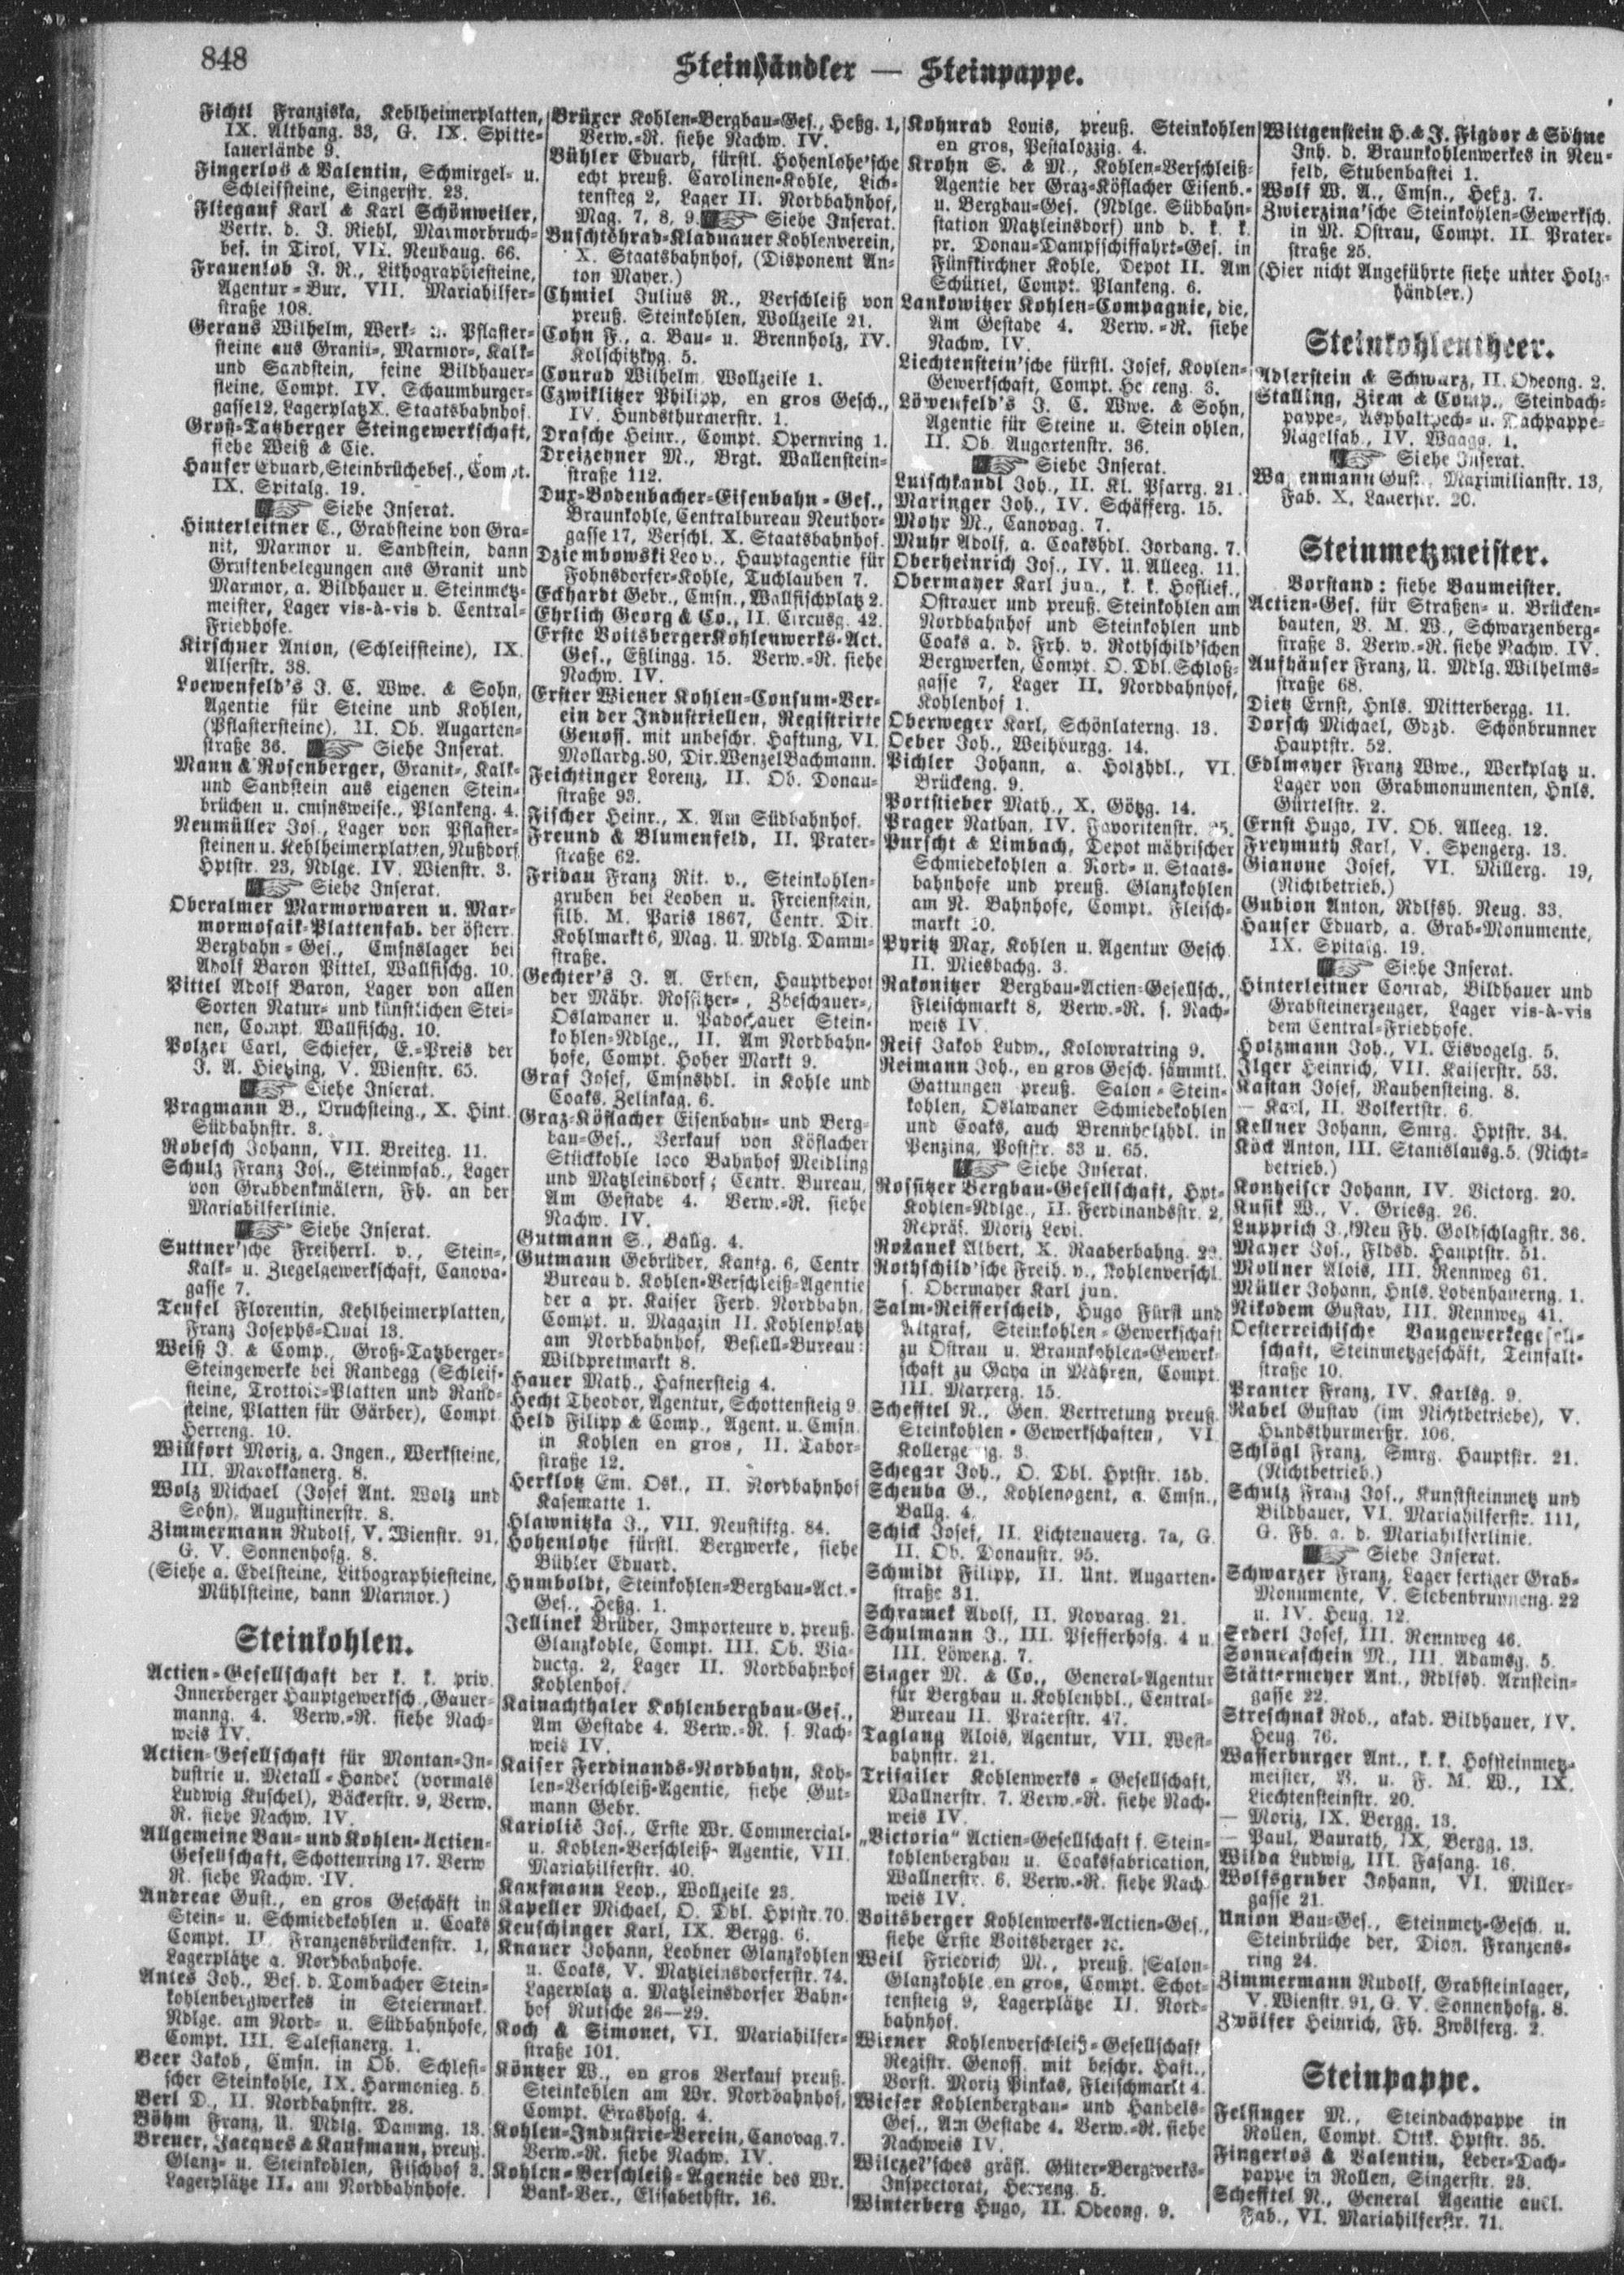 848
Steinhändler — Steinpappe.
Fichtl Franziska, Kehlheimerplatten,
IX. Althang. 33, G. IX. Spitte-
lauerlände 9.
Fingerlos & Valentin, Schmirgel- u.
Schleifsteine, Singerstr. 23.
Fliegauf Karl & Karl Schönweiler,
Vertr. d. J. Riehl, Marmorbruch-
bes. in Tirol, VII. Neubaug. 66.
Frauenlob J. R., Lithographiesteine,
Agentur-Bur. VII. Mariahilfer-
straße 108.
Geraus Wilhelm, Werk- u. Pflaster-
steine aus Granit-, Marmor-, Kalk-
und Sandstein, feine Bildhauer-
steine, Compt. IV. Schaumburger-
gasse 12, Lagerplatz X. Staatsbahnhof.
Groß-Tatzberger Steingewerkschaft,
siehe Weiß & Cie.
Hauser Eduard, Steinbrüchebes., Compt.
IX. Spitalg. 19.
Siehe Inserat.
Hinterleitner C., Grabsteine von Gra-
nit, Marmor u. Sandstein, dann
Gruftenbelegungen aus Granit und
Marmor, a. Bildhauer u. Steinmetz-
meister, Lager vis-à-vis d. Central-
Friedhofe.
Kirschner Anton, (Schleifsteine), IX.
Alserstr. 38.
Loewenfeld's J. C. Wwe. & Sohn,
Agentie für Steine und Kohlen,
(Pflastersteine), II. Ob. Augarten-
straße 36. Siehe Inserat.
Mann & Rosenberger, Granit-, Kalk-
und Sandstein aus eigenen Stein-
brüchen u. cmsnsweise, Plankeng. 4.
Neumüller Jos., Lager von Pflaster-
steinen u. Kehlheimerplatten, Nußdorf,
Hptstr. 23, Ndlge. IV. Wienstr. 3.
Siehe Inserat.
Oberalmer Marmorwaren u. Mar-
mormosaik-Plattenfab. der österr.
Bergbahn-Ges., Cmsnslager bei
Adolf Baron Pittel, Wallfischg. 10.
Pittel Adolf Baron, Lager von allen
Sorten Natur- und künstlichen Stei-
nen, Compt. Wallfischg. 10.
Polzer Carl, Schiefer, E.-Preis der
J. A. Hietzing, V. Wienstr. 65.
Siehe Inserat.
Pragmann B., Bruchsteing., X. Hint.
Südbahnstr. 3.
Robesch Johann, VII. Breiteg. 11.
Schulz Franz Jos., Steinwfab., Lager
von Grabdenkmälern, Fh. an der
Mariahilferlinie.
Siehe Inserat.
Suttner'sche Freiherrl. v., Stein-,
Kalk- u. Ziegelgewerkschaft, Canova-
gasse 7.
Teufel Florentin, Kehlheimerplatten,
Franz Josephs-Quai 13.
Weiß J. & Comp., Groß-Tatzberger-
Steingewerke bei Randegg (Schleif-
steine, Trottoir-Platten und Rand-
steine, Platten für Gärber), Compt.
Herreng. 10.
Willfort Moriz, a. Ingen., Werksteine,
III. Marokkanerg. 8.
Wolz Michael (Josef Ant. Wolz und
Sohn), Augustinerstr. 8.
Zimmermann Rudolf, V. Wienstr. 91,
G. V. Sonnenhofg. 8.
(Siehe a. Edelsteine, Lithographiesteine,
Mühlsteine, dann Marmor.)
Steinkohlen.
Actien-Gesellschaft der k. k. priv.
Innerberger Hauptgewerksch., Gauer-
manng. 4. Verw.-R. siehe Nach-
weis IV.
Actien-Gesellschaft für Montan-In-
dustrie u. Metall-Handel (vormals
Ludwig Kuschel), Bäckerstr. 9, Verw.
R. siehe Nachw. IV.
Allgemeine Bau- und Kohlen-Actien-
Gesellschaft, Schottenring 17. Verw
R. siehe Nachw. IV.
Andreae Gust., en gros Geschäft in
Stein- u. Schmiedekohlen u. Coaks
Compt. II. Franzensbrückenstr. 1,
Lagerplätze a. Nordbahnhofe.
Anies Joh., Bes. d. Tombacher Stein-
kohlenbergwerkes in Steiermark.
Ndlge. am Nord- u. Südbahnhofe,
Compt. III. Salesianerg. 1.
Beer Jakob, Cmsn. in Ob. Schlesi-
scher Steinkohle, IX. Harmonieg. 5.
Berl D., II. Nordbahnstr. 28.
Böhm Franz, U. Mdlg. Dammg. 13.
Breuer, Jacques & Kaufmann, preuß.
Glanz- u. Steinkohlen, Fischhof 3.
Lagerplätze II. am Nordbahnhofe.
Brüxer Kohlen-Bergbau-Ges., Heßg. 1,
Verw.-R. siehe Nachw. IV.
Bühler Eduard, fürstl. Hohenlohe'sche
echt preuß. Carolinen-Kohle, Lich-
tensteg 2, Lager II. Nordbahnhof,
Mag. 7, 8, 9. Siehe Inserat.
Buschtehrad-Kladnauer Kohlenverein,
X. Staatsbahnhof, (Disponent An-
ton Mayer.)
Chmiel Julius R., Verschleiß von
preuß. Steinkohlen, Wollzeile 21.
Cohn F., a. Bau- u. Brennholz, IV.
Kolschitzkyg. 5.
Conrad Wilhelm, Wollzeile 1.
Czwiklitzer Philipp, en gros Gesch.,
IV. Hundsthurmerstr. 1.
Drasche Heinr., Compt. Opernring 1.
Dreizehner M., Brgt. Wallenstein-
straße 112.
Dux-Bodenbacher-Eisenbahn-Ges.,
Braunkohle, Centralbureau Neuthor-
gasse 17, Verschl. X. Staatsbahnhof.
Dziembowski Leov., Hauptagentie für
Fohnsdorfer-Kohle, Tuchlauben 7.
Eckhardt Gebr., Cmsn., Wallfischplatz 2.
Ehrlich Georg & Co., II. Circusg. 42.
Erste Voitsberger Kohlenwerks-Act.
Ges., Eßlingg. 15. Verw.-R. siehe
Nachw. IV.
Erster Wiener Kohlen-Consum-Ver-
ein der Industriellen, Registrirte
Genoss. mit unbeschr. Haftung, VI.
Mollardg. 30, Dir. Wenzel Bachmann.
Feichtinger Lorenz, II. Ob. Donau-
straße 93.
Fischer Heinr., X. Am Südbahnhof.
Freund & Blumenfeld, II. Prater-
straße 62.
Fridau Franz Rit. v., Steinkohlen-
gruben bei Leoben u. Freienstein,
silb. M. Paris 1867, Centr. Dir.
Kohlmarkt 6, Mag. U. Mdlg. Damm-
straße.
Gechter's J. A. Erben, Hauptdepot
der Mähr. Rossitzer-, Zbeschauer-,
Oslawaner u. Padochauer Stein-
kohlen-Ndlge., II. Am Nordbahn-
hofe, Compt. Hoher Markt 9.
Graf Josef, Cmsnshdl. in Kohle und
Coaks, Zelinkag. 6.
Graz-Köflacher Eisenbahn- und Berg-
bau-Ges., Verkauf von Köflacher
Stückkohle loco Bahnhof Meidling
und Matzleinsdorf; Centr. Bureau,
Am Gestade 4. Verw.-R. siehe
Nachw. IV.
Gutmann S., Ballg. 4.
Gutmann Gebrüder, Kantg. 6, Centr
Bureau d. Kohlen-Verschleiß-Agentie
der a pr. Kaiser Ferd. Nordbahn,
Compt. u. Magazin II. Kohlenplatz
am Nordbahnhof, Bestell-Bureau:
Wildpretmarkt 8.
Hauer Math., Hafnersteig 4.
Hecht Theodor, Agentur, Schottensteig 9.
Held Filipp & Comp., Agent. u. Cmsn.
in Kohlen en gros, II. Tabor-
straße 12.
Herklotz Em. Osk., II. Nordbahnhof
Kasematte 1.
Hlawnitzka J., VII. Neustiftg. 84.
Hohenlohe fürstl. Bergwerke, siehe
Bühler Eduard.
Humboldt, Steinkohlen-Bergbau-Act.-
Ges., Heßg. 1.
Jellinek Brüder, Importeure v. preuß.
Glanzkohle, Compt. III. Ob. Via-
ductg. 2, Lager II. Nordbahnhof
Kohlenhof.
Kainachthaler Kohlenbergbau-Ges.,
Am Gestade 4. Verw.-R. s. Nach-
weis IV.
Kaiser Ferdinands-Nordbahn, Koh-
len-Verschleiß-Agentie, siehe Gut-
mann Gebr.
Kariolic Jos., Erste Wr. Commercial-
u. Kohlen-Verschleiß-Agentie, VII.
Mariahilferstr. 40.
Kaufmann Leop., Wollzeile 23.
Kapeller Michael, O. Dbl. Hptstr. 70.
Keuschinger Karl, IX. Bergg. 6.
Knauer Johann, Leobner Glanzkohlen
u. Coaks, V. Matzleinsdorferstr. 74.
Lagerplatz a. Matzleinsdorfer Bahn-
hof Rutsche 26—29.
Koch & Simonet, VI. Mariahilfer-
straße 101.
Köntzer W., en gros Verkauf preuß.
Steinkohlen am Wr. Nordbahnhof,
Compt. Grashofg. 4.
Kohlen-Industrie-Verein, Canovag. 7.
Verw.-R. siehe Nachw. IV.
Kohlen-Verschleiß-Agentie des Wr.
Bank-Ver., Elisabethstr. 16.
Kohnrad Louis, preuß. Steinkohlen
en gros, Pestalozzig. 4.
Krohn S. & M., Kohlen-Verschleiß-
Agentie der Graz-Köflacher Eisenb.-
u. Bergbau-Ges. (Ndlge. Südbahn-
station Matzleinsdorf) und d. k. k.
pr. Donau-Dampfschiffahrt-Ges. in
Fünfkirchner Kohle, Depot II. Am
Schüttel, Compt. Plankeng. 6.
Lankowitzer Kohlen-Compagnie, die,
Am Gestade 4. Verw.-R. siehe
Nachw. IV.
Liechtenstein'sche fürstl. Josef, Kohlen-
Gewerkschaft, Compt. Herreng. 3.
Löwenfeld's J. C. Wwe. & Sohn,
Agentie für Steine u. Steinkohlen,
II. Ob. Augartenstr. 36.
Siehe Inserat.
Lutschkandl Joh., II. Kl. Pfarrg. 21.
Maringer Joh., IV. Schäfferg. 15.
Mohr M., Canovag. 7.
Muhr Adolf, a. Coakshdl. Jordang. 7.
Oberheinrich Jos., IV. U. Alleeg. 11.
Obermayer Karl jun., k. k. Hoflief.,
Ostrauer und preuß. Steinkohlen am
Nordbahnhof und Steinkohlen und
Coaks a. d. Frh. v. Rothschild'schen
Bergwerken, Compt. O. Dbl. Schloß-
gasse 7, Lager II. Nordbahnhof,
Kohlenhof 1.
Oberweger Karl, Schönlaterng. 13.
Oeber Joh., Weihburgg. 14.
Pichler Johann, a. Holzhdl., VI.
Brückeng. 9.
Portstieber Math., X. Götzg. 14.
Prager Nathan, IV. Favoritenstr. 25.
Purscht & Limbach, Depot mährischer
Schmiedekohlen a. Nord- u. Staats-
bahnhofe und preuß. Glanzkohlen
am N. Bahnhofe, Compt. Fleisch-
markt 10.
Pyritz Max, Kohlen u. Agentur Gesch.
II. Miesbachg. 3.
Rakonitzer Bergbau-Actien-Gesellsch.,
Fleischmarkt 8, Verw.-R. s. Nach-
weis IV.
Reif Jakob Ludw., Kolowratring 9.
Reimann Joh., en gros Gesch. sämmtl.
Gattungen preuß. Salon-Stein-
kohlen, Oslawaner Schmiedekohlen
und Coaks, auch Brennholzhdl. in
Penzing, Poststr. 33 u. 65.
Siehe Inserat.
Rossitzer Bergbau-Gesellschaft, Hpt-
Kohlen-Ndlge., II. Ferdinandsstr. 2,
Repräs. Moriz Levi.
Rožanek Albert, X. Raaberbahng. 22.
Rothschild'sche Freih. v., Kohlenverschl.
s. Obermayer Karl jun.
Salm-Reifferscheid, Hugo Fürst und
Altgraf, Steinkohlen-Gewerkschaft
zu Ostrau u. Braunkohlen-Gewerk-
schaft zu Gaya in Mähren, Compt.
III. Marxerg. 15.
Schefftel N., Gen. Vertretung preuß.
Steinkohlen-Gewerkschaften, VI.
3.
Schegar Joh., O. Dbl. Hptstr. 15b.
Scheuba G., Kohlenagent, a. Cmsn.,
Ballg. 4.
Schick Josef, II. Lichtenauerg. 7a, G.
II. Ob. Donaustr. 95.
Schmidt Filipp, II. Unt. Augarten-
straße 31.
Schramek Adolf, II. Novarag. 21.
Schulmann J., III. Pfefferhofg. 4 u.
III. Löweng. 7.
Singer M. & Co., General-Agentur
für Bergbau u. Kohlenhdl., Central-
Bureau II. Praterstr. 47.
Taglang Alois, Agentur, VII. West-
bahnstr. 21.
Trifailer Kohlenwerks-Gesellschaft,
Wallnerstr. 7. Verw.-R. siehe Nach-
weis IV.
„Victoria“ Actien-Gesellschaft f. Stein-
kohlenbergbau u. Coaksfabrication,
Wallnerstr. 6. Verw.-R. siehe Nach
weis IV.
Voitsberger Kohlenwerks-Actien-Ges.,
siehe Erste Voitsberger ꝛc.
Weil Friedrich M., preuß. (Salon-
Glanzkohle en gros, Compt. Schot-
tensteig 9, Lagerplätze II. Nord-
bahnhof.
Wiener Kohlenverschleiß-Gesellschaft
Registr. Genoss. mit beschr. Haft.,
Vorst. Moriz Pinkas, Fleischmarkt 4.
Wieser Kohlenbergbau- und Handels-
Ges., Am Gestade 4. Verw.-R. siehe
Nachweis IV.
Wilczel'sches gräfl. Güter-Bergwerks-
Inspectorat, Herreng. 5.
Winterberg Hugo, II. Odeong. 9.
Wittgenstein H. & J. Figdor & Söhne
Inh. d. Braunkohlenwerkes in Neu-
feld, Stubenbastei 1.
Wolf W. A., Cmsn., Heßg. 7.
Zwierzina'sche Steinkohlen-Gewerksch.
in M. Ostrau, Compt. II. Prater-
straße 25.
(Hier nicht Angeführte siehe unter Holz-
händler.)
Steinkohlentheer.
Adlerstein & Schwarz, II. Odeong. 2.
Stalling, Ziem & Comp., Steindach-
pappe-, Asphaltpech- u. Dachpappe-
Nägelfab., IV. Waagg. 1.
Siehe Inserat.
Wagenmann Gust., Maximilianstr. 13,
Fab. X. Laxerstr. 20.
Steinmetzmeister.
Vorstand: siehe Baumeister.
Actien-Ges. für Straßen- u. Brücken-
bauten, V. M. W., Schwarzenberg-
straße 3. Verw.-R. siehe Nachw. IV.
Aufhäuser Franz, U. Mdlg. Wilhelms-
straße 68.
Dietz Ernst, Hnls. Mitterbergg. 11.
Dorsch Michael, Gdzd. Schönbrunner
Hauptstr. 52.
Edlmayer Franz Wwe., Werkplatz u.
Lager von Grabmonumenten, Hnls.
Gürtelstr. 2.
Ernst Hugo, IV. Ob. Alleeg. 12.
Freymuth Karl, V. Spengerg. 13.
Gianone Josef, VI. Millerg. 19,
(Nichtbetrieb.)
Gubion Anton, Rdlfsh. Neug. 33.
Hauser Eduard, a. Grab-Monumente,
IX. Spitalg. 19.
Siehe Inserat.
Hinterleitner Conrad, Bildhauer und
Grabsteinerzeuger, Lager vis-à-vis
dem Central-Friedhofe.
Holzmann Joh., VI. Eisvogelg. 5.
Ilger Heinrich, VII. Kaiserstr. 53.
Kastan Josef, Rauhensteing. 8.
— Karl, II. Volkertstr. 6.
Kellner Johann, Smrg. Hptstr. 34.
Köck Anton, III. Stanislausg. 5. (Nicht-
betrieb.)
Konheiser Johann, IV. Victorg. 20.
Kusik W., V. Griesg. 26.
Lupprich J., Neu Fh. Goldschlagstr. 36.
Mayer Jos., Fldsd. Hauptstr. 51.
Mollner Alois, III. Rennweg 61.
Müller Johann, Hnls. Lobenhauerng. 1.
Nikodem Gustav, III. Rennweg 41.
Oesterreichische Baugewerkegesell-
schaft, Steinmetzgeschäft, Teinfalt-
straße 10.
Pranter Franz, IV. Karlsg. 9.
Rabel Gustav (im Nichtbetriebe), V.
Hundsthurmerstr. 106.
Schlögl Franz, Smrg. Hauptstr. 21.
(Nichtbetrieb.)
Schulz Franz Jos., Kunststeinmetz und
Bildhauer, VI. Mariahilferstr. 111,
G. Fh. a. d. Mariahilferlinie.
Siehe Inserat.
Schwarzer Franz, Lager fertiger Grab-
Monumente, V. Siebenbrunneng. 22
u. IV. Heug. 12.
Sederl Josef, III. Rennweg 46.
Sonnenschein M., III. Adamsg. 5.
Stättermeyer Ant., Rdlfsh. Arnstein-
gasse 22.
Streschnak Rob., akad. Bildhauer, IV.
Heug. 76.
Wasserburger Ant., k. k. Hofsteinmetz-
meister, B. u. F. M. W., IX.
Liechtensteinstr. 20.
— Moriz, IX. Bergg. 13.
— Paul, Baurath, IX. Bergg. 13.
Wilda Ludwig, III. Fasang. 16.
Wolfsgruber Johann, VI. Miller-
gasse 21.
Union Bau-Ges., Steinmetz-Gesch. u.
Steinbrüche der, Dion. Franzens-
ring 24.
Zimmermann Rudolf, Grabsteinlager,
V. Wienstr. 91, G. V. Sonnenhofg. 8.
Zwölfer Heinrich, Fh. Zwölferg. 2.
Steinpappe.
Felsinger M., Steindachpappe in
Rollen, Compt. Ottk. Hptstr. 35.
Fingerlos & Valentin, Leder-Dach-
pappe in Rollen, Singerstr. 23.
Schefftel N., General Agentie
Fab., VI. Mariahilferstr. 71.